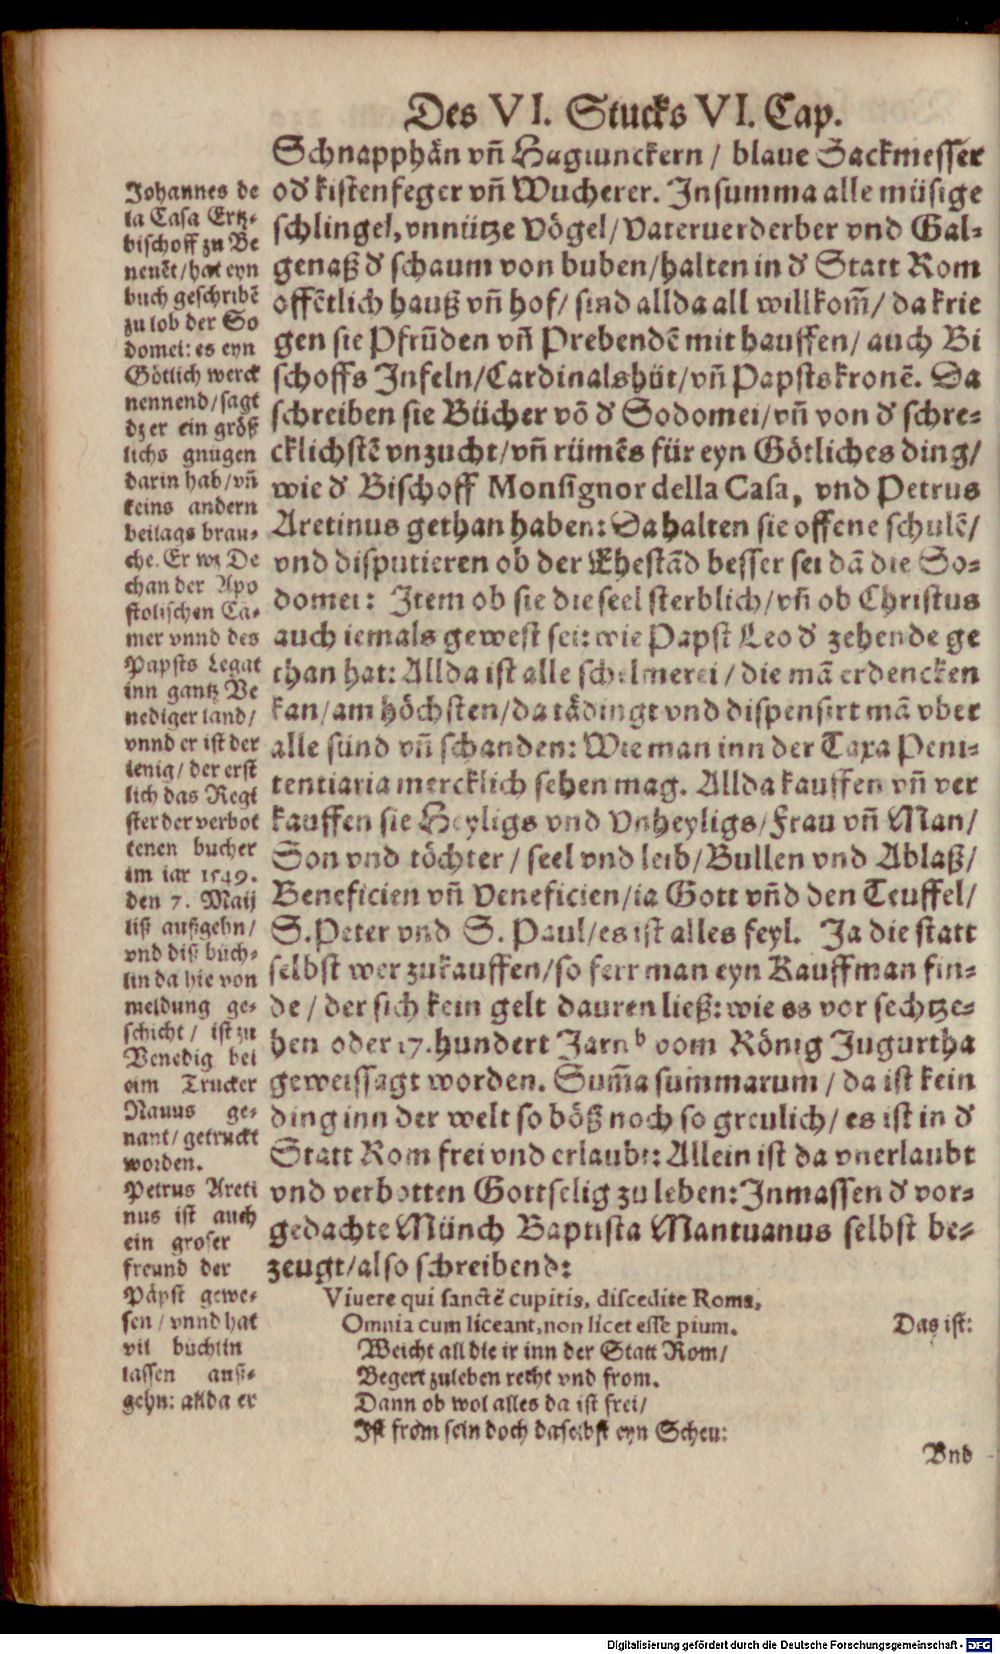 Des VI. Stucks VI. Cap.
Schnapphän vñ Hagwinckern / blaue Sackmesser
od' kistenfeger vñ Wucherer. In summa alle müsige
schlingel, vnnütze Vögel / Vateruerderber vnd Gal-
genaß d' schaum von buben / halten in d' Statt Rom
offētlich hauß vñ hof / sind allda all willkom̃ / da krie
gen sie Pfrůden vñ Prebendē mit hauffen / auch Bi
schoffs Infeln / Cardinalshüt / vñ Papstskronē. Da
schreiben sie Bücher vō d' Sodomei / vñ von d' schre-
cklichstē vnzucht / vñ rümēs für eyn Götliches ding /
wie d' Bischoff Monsignor della Casa, vnd Petrus
Aretinus gethan haben: Da halten sie offene schulē /
vnd disputieren ob der Ehestād besser sei dā die So-
domei: Item ob sie die seel sterblich / vñ ob Christus
auch iemals gewest sei: wie Papst Leo d' zehende ge
than hat: Allda ist alle schelmerei / die mā erdencken
kan / am höchsten / da tädingt vnd dispensirt mā vber
alle sünd vñ schanden: Wie man inn der Taxa Peni-
tentiaria mercklich sehen mag. Allda kauffen vñ ver
kauffen sie Heyligs vnd Vnheyligs / Frau vñ Man /
Son vnd töchter / seel vnd leib / Bullen vnd Ablaß /
Beneficien vñ Veneficien / ia Gott vñd den Teuffel /
S. Peter vnd S. Paul / es ist alles feyl. Ja die statt
selbst wer zukauffen / so ferr man eyn Kauffman fin-
de / der sich kein gelt dauren ließ: wie es vor sechtze-
hen oder 17. hundert Jarn b vom König Jugurtha
geweissagt worden. Sum̃a summarum / da ist kein
ding inn der welt so böß noch so greulich / es ist in d'
Statt Rom frei vnd erlaubt: Allein ist da vnerlaubt
vnd verbotten Gottselig zu leben: Inmassen d' vor-
gedachte Münch Baptista Mantuanus selbst be-
zeugt / also schreibend:
Viuere qui sanctē cupitis, discedite Roma,
Omnia cum liceant, non licet esse pium. Das ist:
Weicht all die ir inn der Statt Rom /
Begert zuleben recht vnd from.
Dann ob wol alles da ist frei /
Ist from sein doch daselbst eyn Scheu:
Vnd
Johannes de
la Casa Ertz-
bischoff zu Be
neuēt / hat eyn
buch geschribē
zu lob der So
domei: es eyn
Götlich werck
nennend / sagt
dz er ein größ
lichs gnügen
darin hab / vñ
keins andern
beilags brau-
che. Er wz De
chan der Apo
stolischen Cā-
mer vnnd des
Papsts Legat
inn gantz Ve
nediger land /
vnnd er ist der
ienig / der erst
lich das Regi
ster der verbot
tenen bucher
im iar 1549.
den 7. Maij
liß außgehn /
vnd diß büch-
lin da hie von
meldung ge-
schicht / ist zu
Venedig bei
eim Trucker
Nauus ge-
nant / getruckt
worden.
Petrus Areti
nus ist auch
ein groser
freund der
Päpst gewe-
sen / vnnd hat
vil büchlin
lassen auß-
gehn: allda er
Digitalisierung gefördert durch die Deutsche Forschungsgemeinschaft - DFG